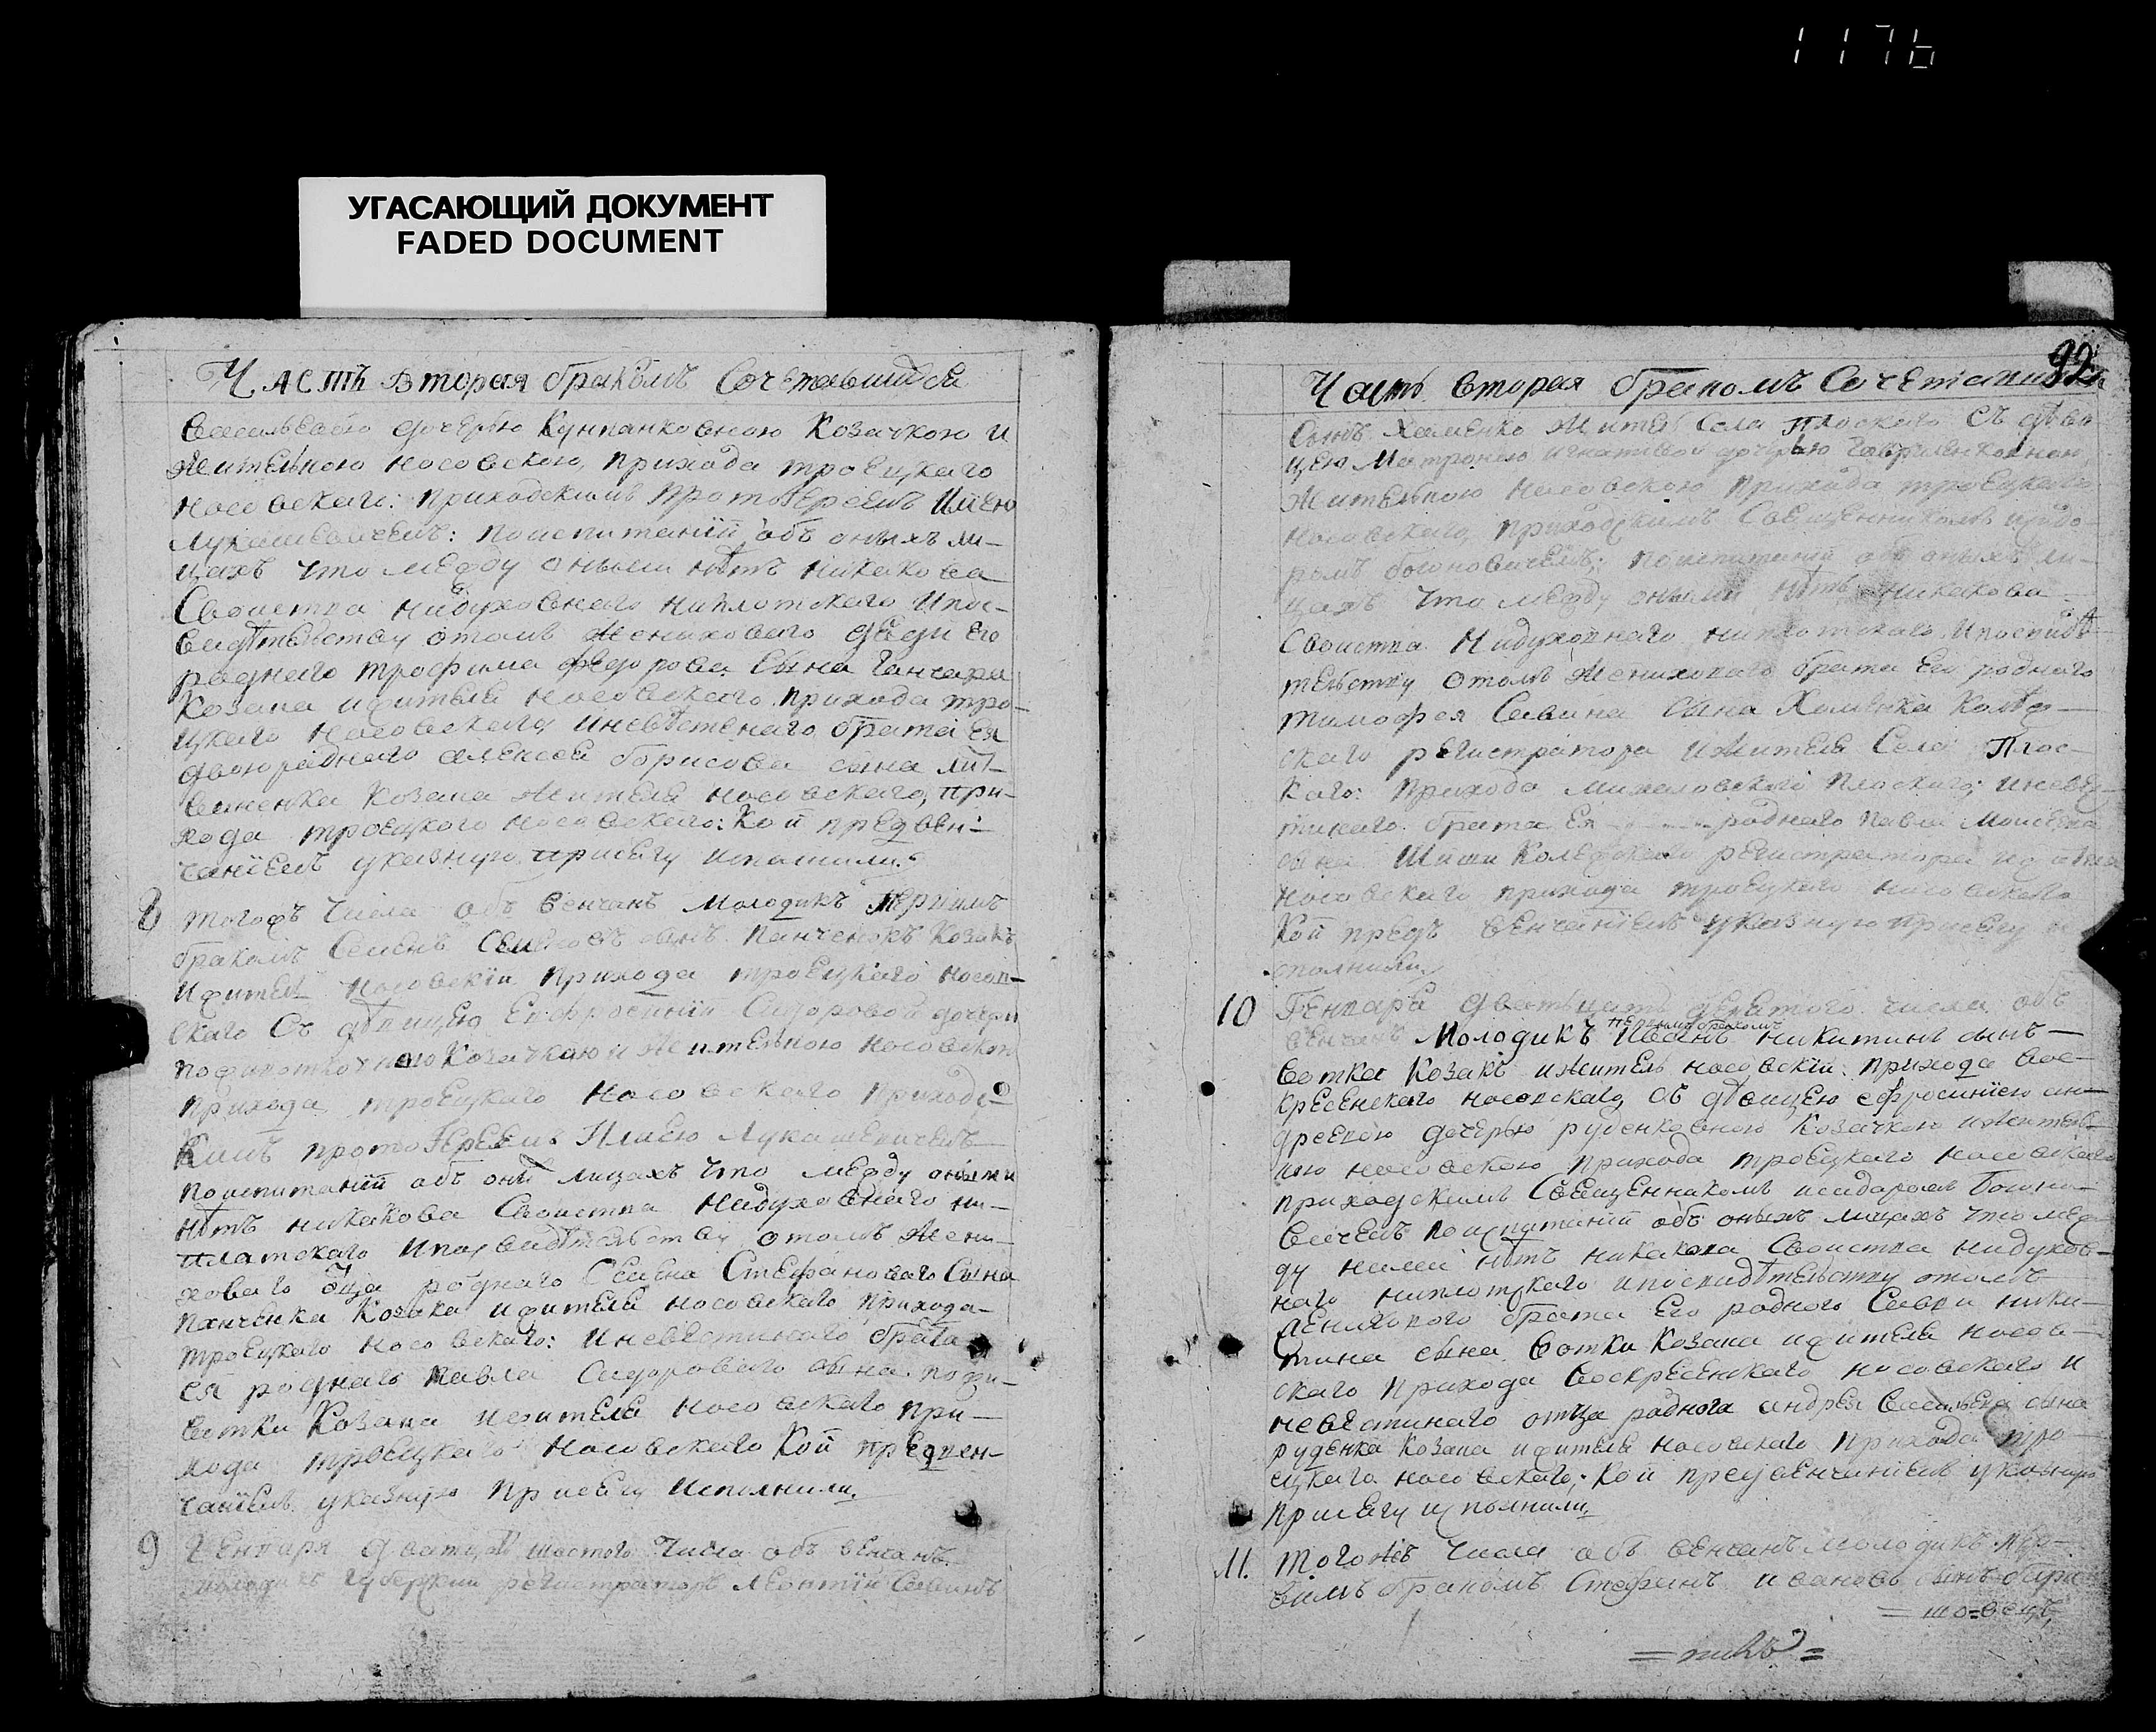 1176
УГАСАЮЩИЙ ДОКУМЕНТ
FADED DOCUMENT
Часть вторая бракомъ Сочетавшихся
дочерью Кунпанковною Козачкою и
жительною носовскою, прихода троецкаго
носовскаго: приходскимъ протоиереемъ Илиею
Лукашевичемъ: поиспитаніи объ оныхъ ли-
цахъ что между оными нѣтъ никакова
Своиства нидуховнаго ниплотскаго Ипос-
видѣтельству отомъ жениховаго дяди его
роднаго трофима федорова сына ганчара
Козака ижителя носовскаго, прихода тро-
ецкаго носовскаго, иневѣстенаго брата ея
двоюроднаго алексея борисова сына лит-
вененка козака жителя носовскаго, при-
хода троецкого носовскаго: Кои предвен-
чаніемъ указную присягу исполнили.
8 тогожъ числа объ венчанъ молодикъ первимъ
бракомъ Семенъ Семеновъ сынъ Панченокъ Козакъ
ижитель носовскіи прихода троецкаго носов-
скаго Съ дѣвицею Сидоровою дочерю
Козачкою и жительною носовскою
прихода троецкаго носовскаго приходс-
кимъ протоиереемъ Илиею Лукашевичемъ
поиспитаніи объ оныхъ лицахъ что между оными
нѣтъ никакова Своиства нидуховнаго ни-
платскаго ипосвидѣтельству отомъ жени-
ховаго оца роднаго Семена Стефановаго Сына
панченка Козака ижителя носовскаго прихода
троецкаго носовскаго: иневѣстинаго брата
ея роднаго павла Сидороваго сына
Козака ижителя носовскаго при-
хода троецкаго носовскаго Кои предвен-
чаніемъ указную присягу исполнили.
9 Генваря дватцать шостого числа объ венчанъ
молодикъ регистраторъ Леонтіи Савинъ
92
Часть вторая бракомъ Сочетавшихся
Сынъ Хоменко житель Села Плоского Съ дѣви
цею Матроною игнатовою дочерью
жительною носовскою прихода троецкаго
носовскаго, приходскимъ Священникомъ исидо-
ромъ богоновичемъ; поиспитаніи объ оныхъ ли-
цахъ что между оными нѣтъ никакова
Своиства нидуховнаго ниплотскаго ипосвидѣ
тельству отомъ жениховаго брата его роднаго
тимофея Савина сына Хоменка Колѣж-
скаго регистратора ижителя Села Плос-
каго: прихода михаловского плоского; иневѣс-
тинаго брата ея роднаго павла моисеева
сына Шиши Колежскаго регистратора
носовскаго прихода троецкаго носовскаго
Кои предъ венчаніемъ указную присягу и
сполнили.
10 Генваря дватцать девятого числа объ
венчанъ молодикъ первимъ бракомъ Иванъ никитинъ сынъ
вотка Козакъ ижитель носовскіи прихода вос-
кресенскаго носовскаго, съ дѣвицею ефросиніею ан-
дреевою дочерью руденковною козачкою ижитель-
ною носовскою прихода троецкаго носовскаго
приходскимъ Священникомъ исидоромъ богоно-
вичемъ поиспитаніи объ оныхъ лицахъ что меж
ду ними нѣтъ никакова Своиства нидухов-
наго ниплотскаго ипосвидѣтельству отомъ
жениховаго брата его родного Саввы ники-
тина сына вотки Козака ижителя носов-
скаго прихода воскресенскаго носовскаго и
невѣстинаго отца роднога андрея васильева сына
руденка козака ижителя носовскаго прихода тро-
ецкаго носовскаго; кои предвенчаніемъ указную
присягу исполнили.
11. Тогожъ числа объ венчанъ молодикъ пер-
вимъ бракомъ Стефанъ ивановъ сынъ